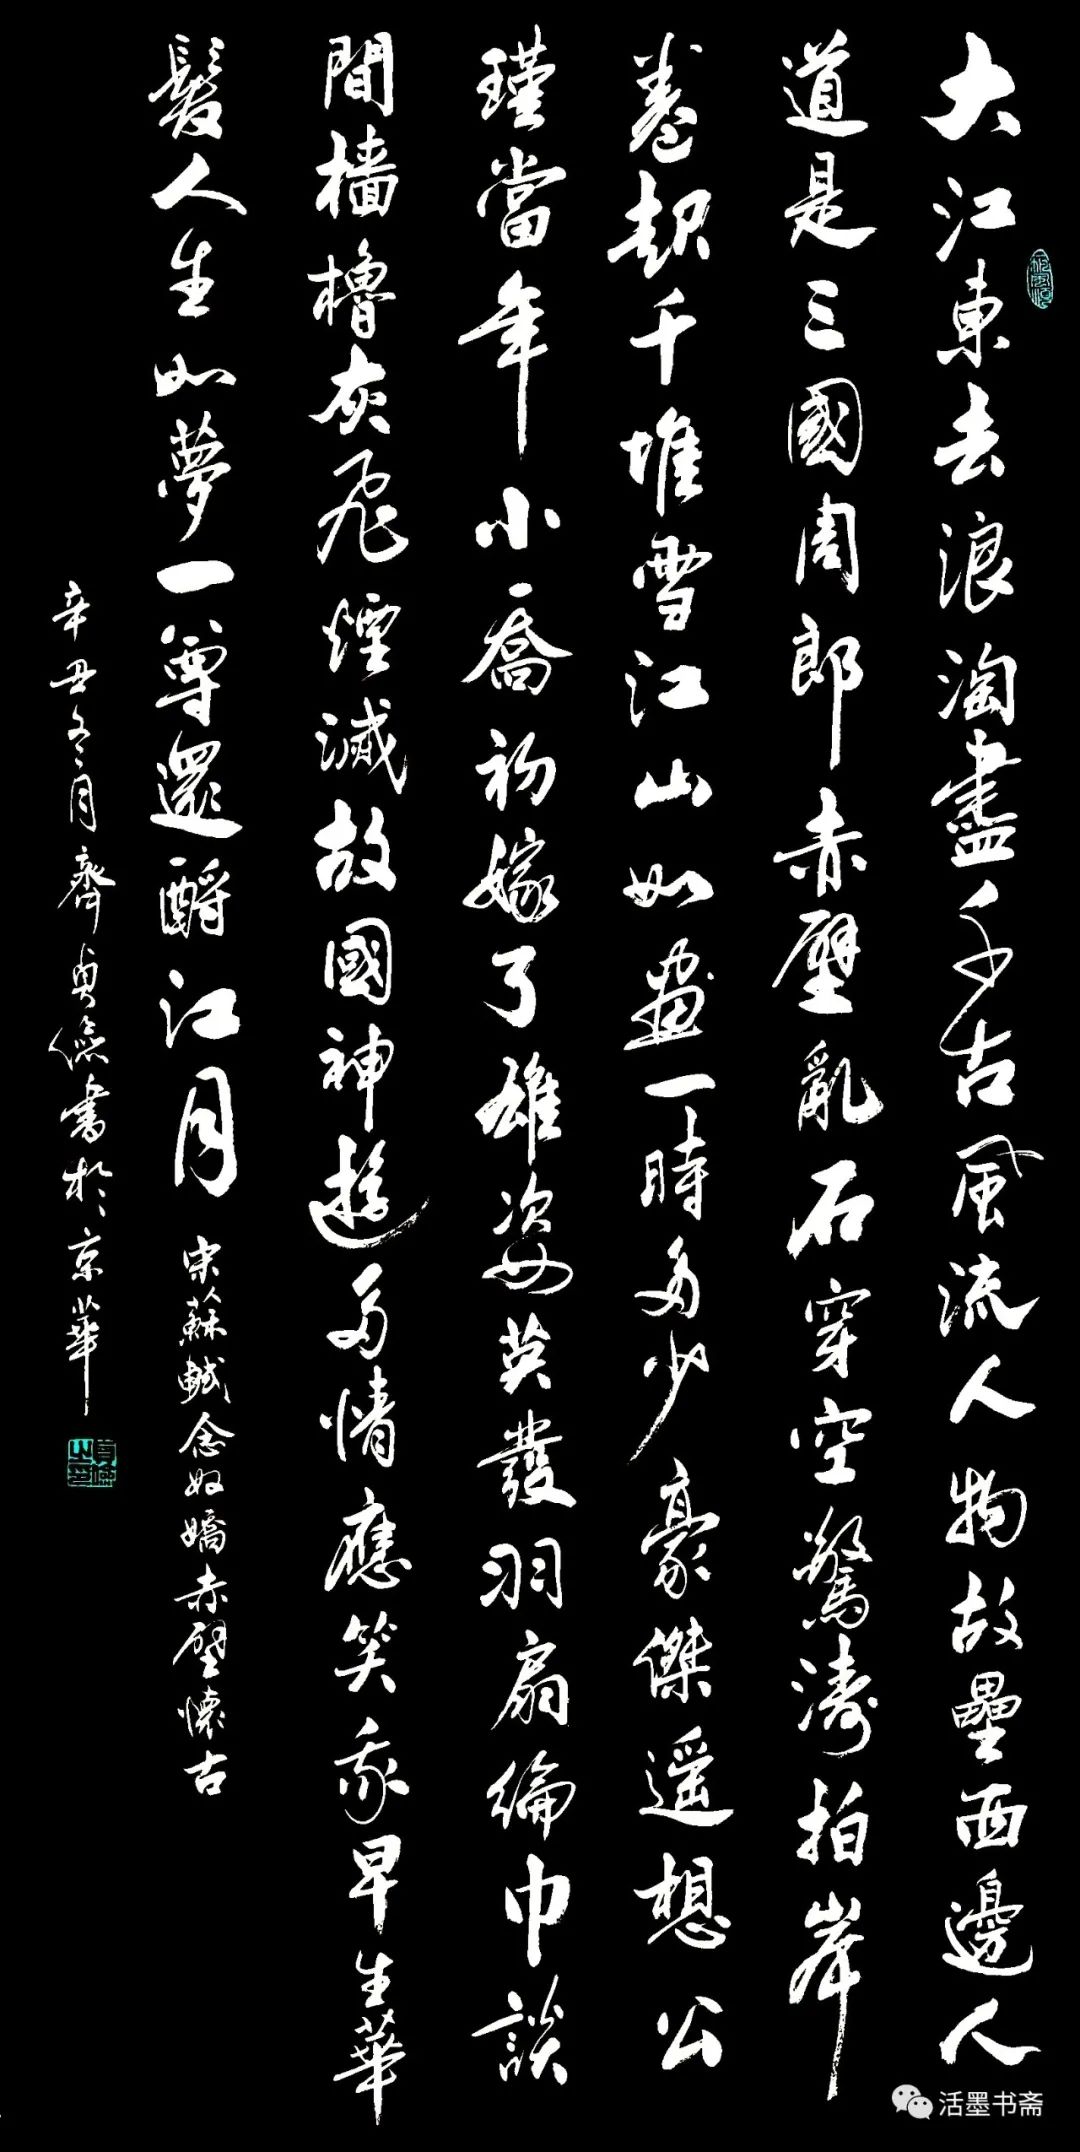 大江東去浪淘盡千古風流人物故壘西邊人
道是三國周郎赤壁亂石穿空驚濤拍岸
卷起千堆雪江山如畫一時多少豪傑遥想公
瑾當年小喬初嫁了雄姿英發羽扇綸巾談
間檣櫓灰飛煙滅故國神遊多情應笑我早生華
髮人生如夢一尊還酹江月 宋人蘇軾念奴嬌赤壁懷古
辛丑冬月齊貞儉書於京華
活墨书斋